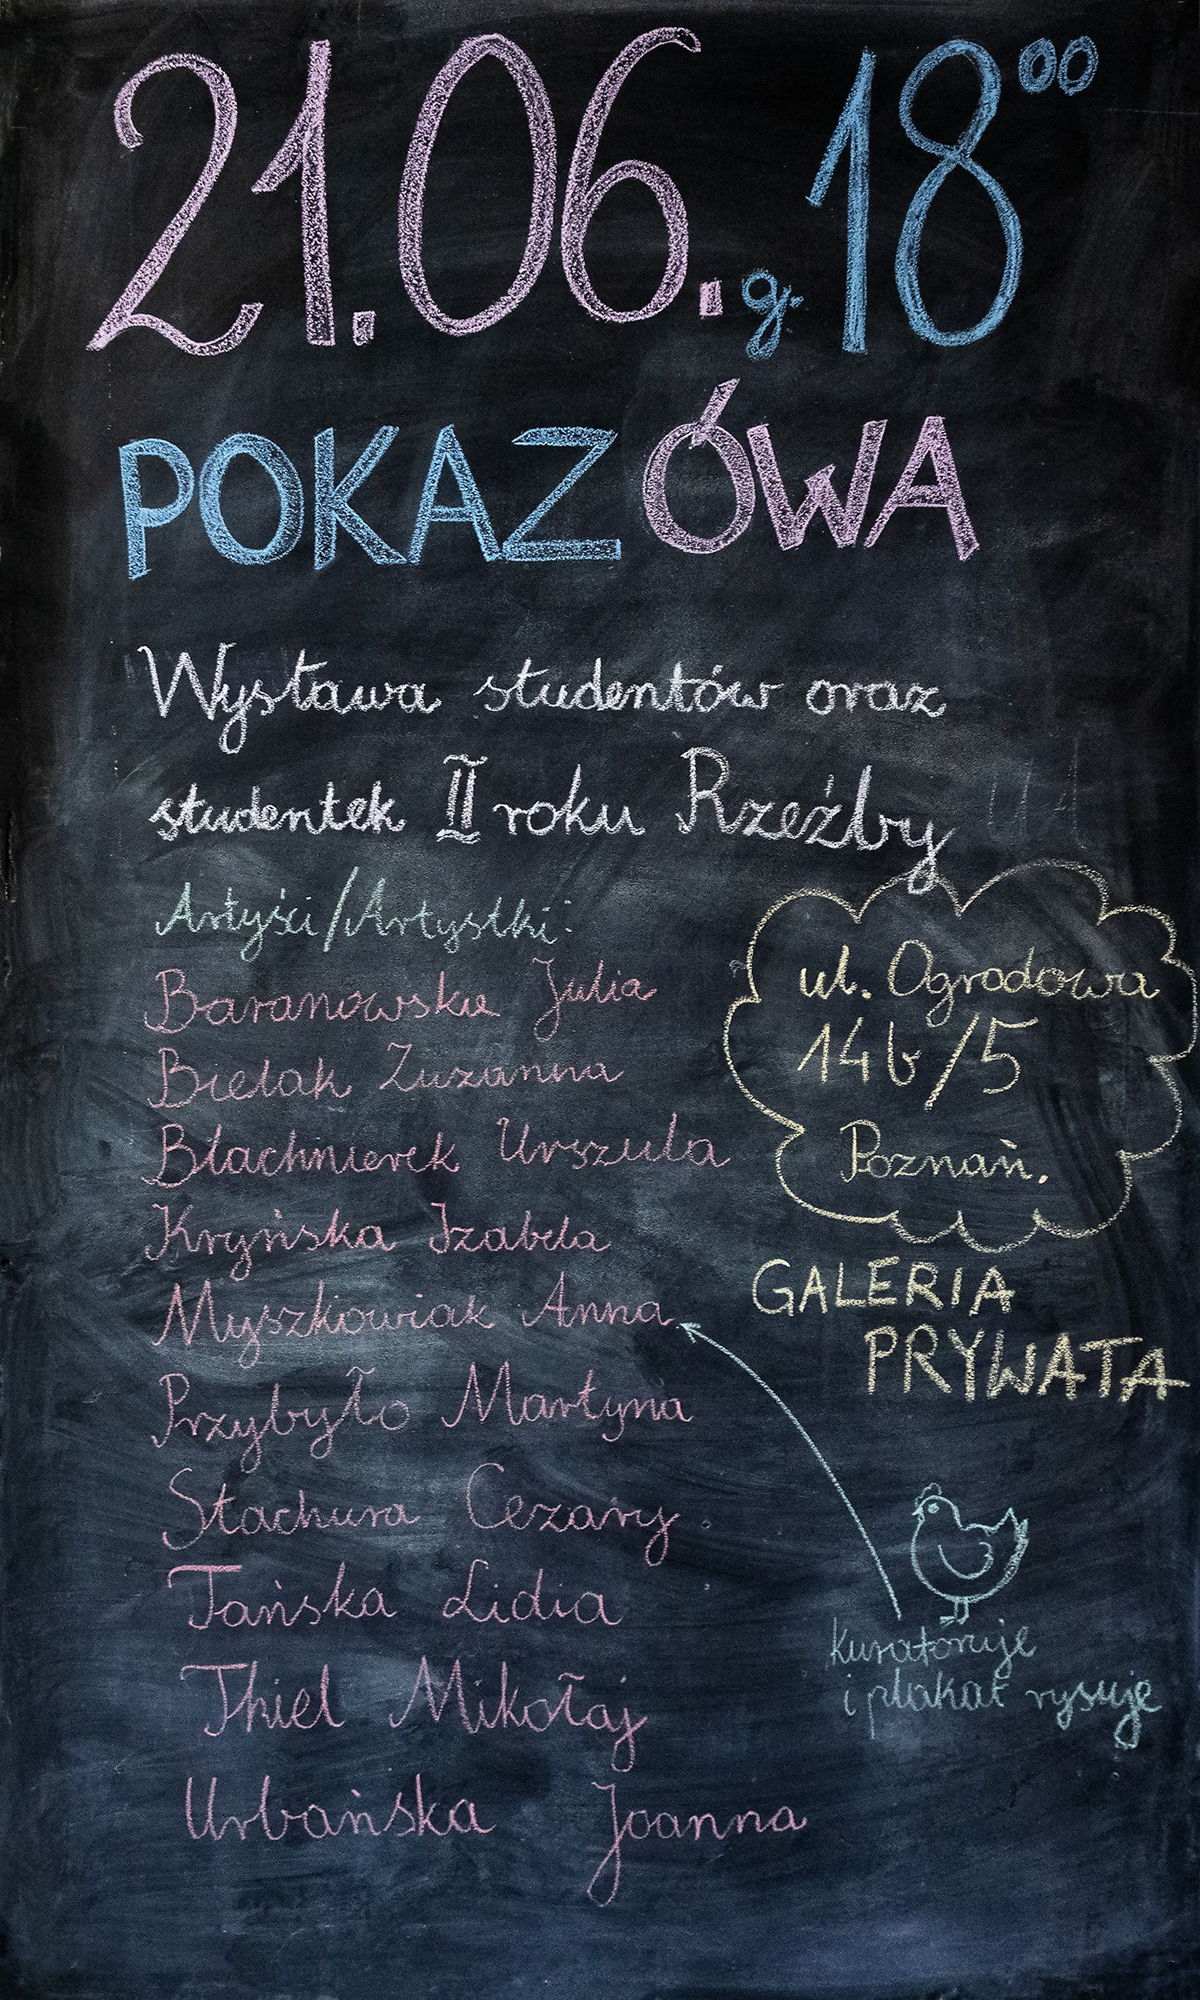 21.06. g. 18⁰⁰
POKAZÓWA
Wystawa studentów oraz
studentek II roku Rzeźby
Artyści/Artystki:
Baranowska Julia
Bielak Zuzanna
Błachnierek Urszula
Kryńska Izabela
Myszkowiak Anna
Przybyło Martyna
Stachura Cezary
Tańska Lidia
Thiel Mikołaj
Urbańska Joanna
ul. Ogrodowa
14b/5
Poznań.
GALERIA
PRYWATA
kuratoruje
i plakat rysuje